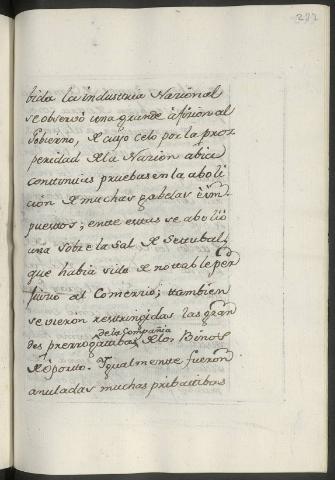 287
bida la industria Nazional
se observó una grande aficion al
Gobierno, de cuyo celo por la pros
peridad de la Nazion abia
continuas pruebas en la aboli
cion de muchas gabelas é im
puestos; entre estas se abolió
una sobre la Sal de Setubal,
que habia sido de nottable per
juicio al Comerzio; ttambien
se vieron restringidas las gran
des prerrogattibas de la Compañia de los Binos
de Oporto. Ygualmentte fueron
anuladas muchas pribattibas